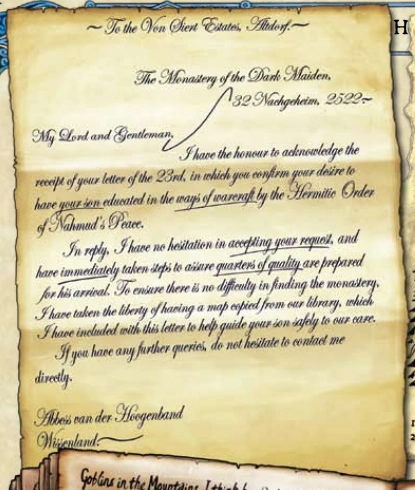 ~ To the Von Siert Estates, Altdorf. ~
H
The Monastery of the Dark Maiden,
32 Nachgeheim, 2522
My Lord and Gentleman,
I have the honour to acknowledge the
receipt of your letter of the 23rd, in which you confirm your desire to
have your son educated in the ways of warcraft by the Hermitic Order
of Nahmud's Peace.
In reply, I have no hesitation in accepting your request, and
have immediately taken steps to assure quarters of quality are prepared
for his arrival. To ensure there is no difficulty in finding the monastery,
I have taken the liberty of having a map copied from our library, which
I have included with this letter to help guide your son safely to our care.
If you have any further queries, do not hesitate to contact me
directly.
Abbess van der Hoogenband
Wissenland.
Goblins in the Mountains, I think